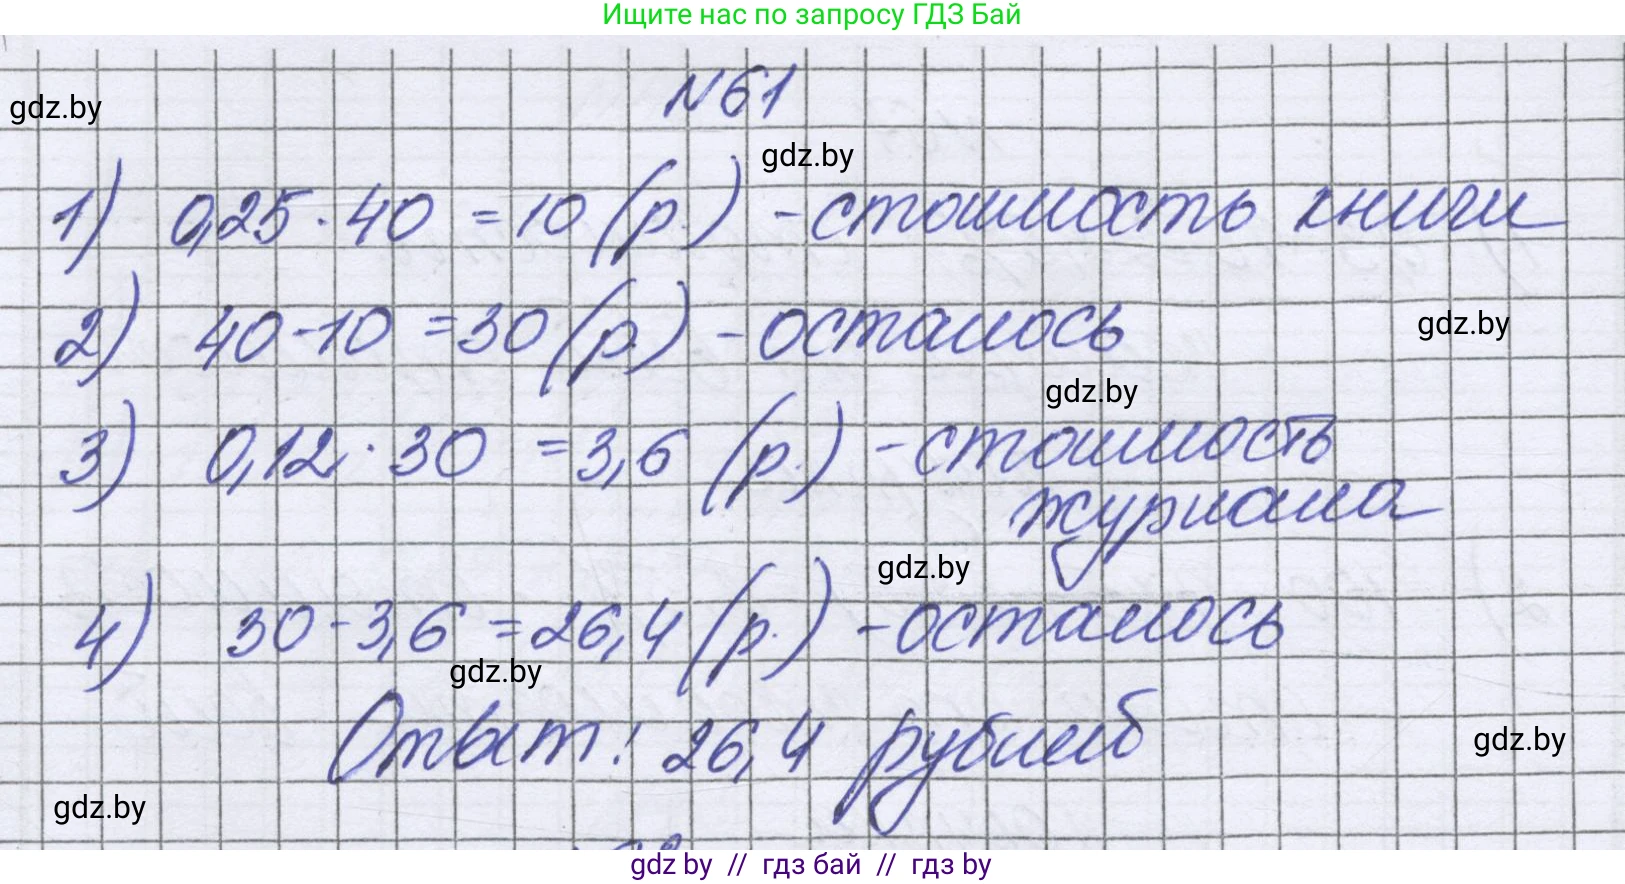 Ищите нас по запросу ГДЗ Бай
№61
gdz.by
gdz.by
1) 0,25 · 40 = 10 (р) - стоимость книги
2) 40 - 10 = 30 (р.) - осталось
gdz.by
gdz.by
3) 0,12 · 30 = 3,6 (р.) - стоимость
журнала
gdz.by
4) 30 - 3,6 = 26,4 (р.) - осталось
gdz.by
Ответ: 26,4 рублей
gdz.by
gdz.by
gdz by // гдз бай // гдз by